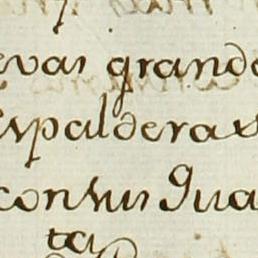 evas grande
espaldera
con sus Gua
ta